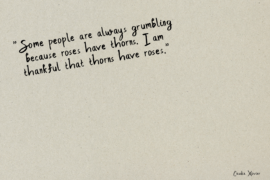 "Some people are always grumbling
because roses have thorns. I am
thankful that thorns have roses."